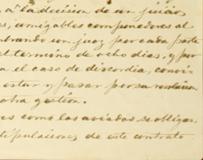 a la decision de un juicio
s, amigables componedores al
mbrando un juez por cada parte
el termino de ocho dias, y por
ra el caso de discordia, convi
estar y pasar por su
otra gestion.
es como las aviadas se obligan
stipulaciones de este contrato